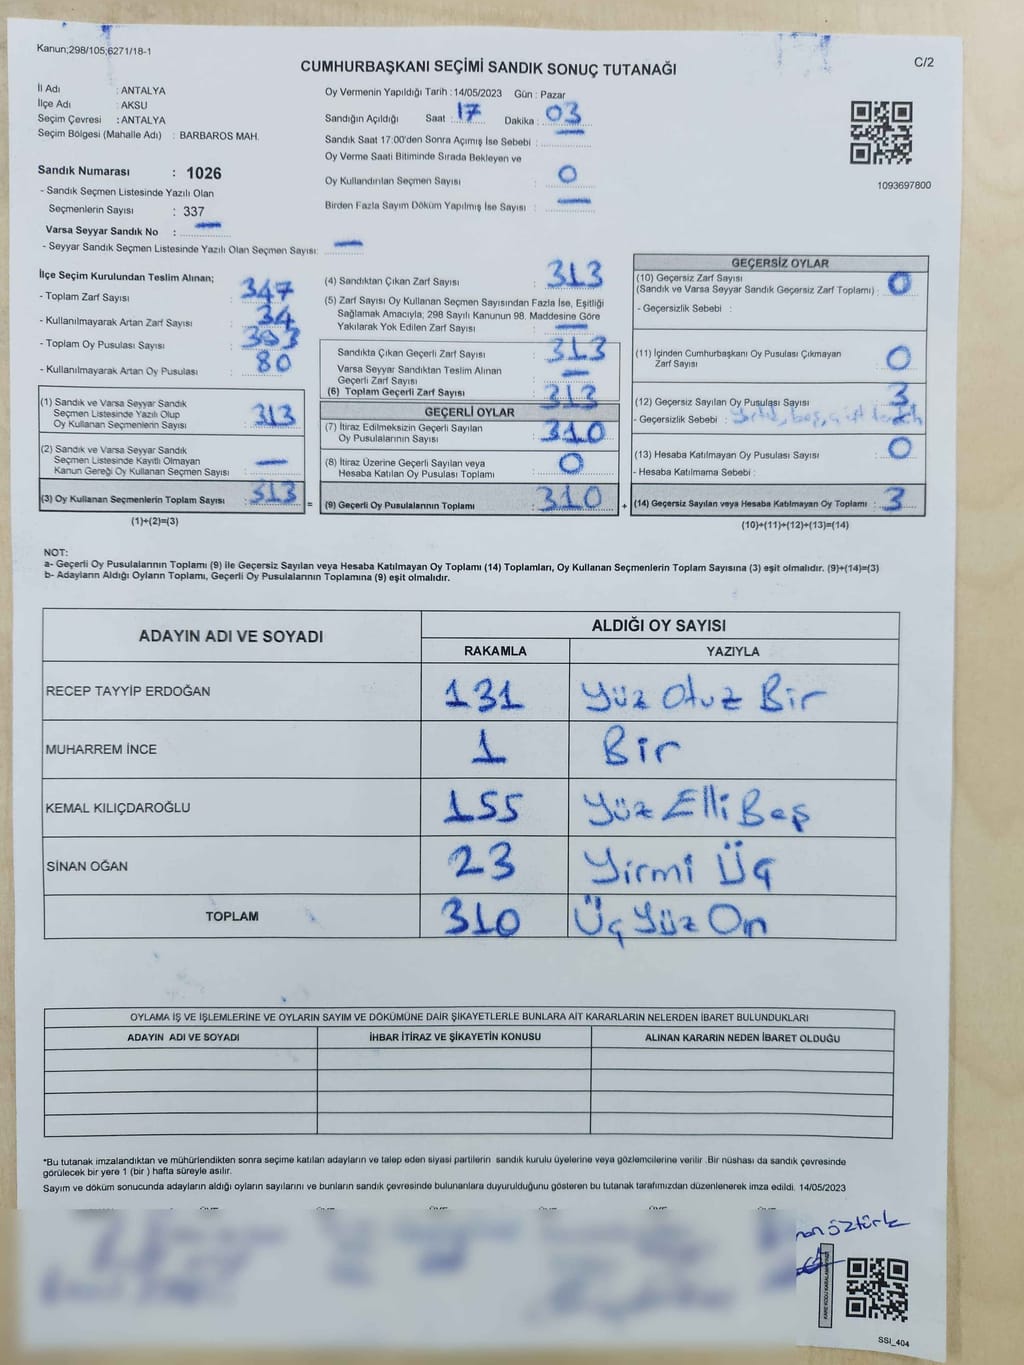 Kanun;298/105;6271/18-1
C/2
CUMHURBAŞKANI SEÇİMİ SANDIK SONUÇ TUTANAĞI
İl Adı : ANTALYA
İlçe Adı : AKSU
Seçim Çevresi : ANTALYA
Seçim Bölgesi (Mahalle Adı) : BARBAROS MAH.
Sandık Numarası : 1026
- Sandık Seçmen Listesinde Yazılı Olan
Seçmenlerin Sayısı : 337
Varsa Seyyar Sandık No : —
- Seyyar Sandık Seçmen Listesinde Yazılı Olan Seçmen Sayısı: —
Oy Vermenin Yapıldığı Tarih : 14/05/2023 Gün : Pazar
Sandığın Açıldığı Saat : 17 Dakika : 03
Sandık Saat 17:00'den Sonra Açımış İse Sebebi : —
Oy Verme Saati Bitiminde Sırada Bekleyen ve
Oy Kullandırılan Seçmen Sayısı : 0
Birden Fazla Sayım Döküm Yapılmış İse Sayısı : —
1093697800
İlçe Seçim Kurulundan Teslim Alınan;
- Toplam Zarf Sayısı : 347
- Kullanılmayarak Artan Zarf Sayısı : 34
- Toplam Oy Pusulası Sayısı : 393
- Kullanılmayarak Artan Oy Pusulası : 80
(1) Sandık ve Varsa Seyyar Sandık
Seçmen Listesinde Yazılı Olup
Oy Kullanan Seçmenlerin Sayısı : 313
(2) Sandık ve Varsa Seyyar Sandık
Seçmen Listesinde Kayıtlı Olmayan
Kanun Gereği Oy Kullanan Seçmen Sayısı : —
(3) Oy Kullanan Seçmenlerin Toplam Sayısı : 313 =
(1)+(2)=(3)
(4) Sandıktan Çıkan Zarf Sayısı : 313
(5) Zarf Sayısı Oy Kullanan Seçmen Sayısından Fazla İse, Eşitliği
Sağlamak Amacıyla; 298 Sayılı Kanunun 98. Maddesine Göre
Yakılarak Yok Edilen Zarf Sayısı : —
Sandıkta Çıkan Geçerli Zarf Sayısı : 313
Varsa Seyyar Sandıktan Teslim Alınan
Geçerli Zarf Sayısı : —
(6) Toplam Geçerli Zarf Sayısı : 313
GEÇERLİ OYLAR
(7) İtiraz Edilmeksizin Geçerli Sayılan
Oy Pusulalarının Sayısı : 310
(8) İtiraz Üzerine Geçerli Sayılan veya
Hesaba Katılan Oy Pusulası Toplamı : 0
(9) Geçerli Oy Pusulalarının Toplamı : 310 +
GEÇERSİZ OYLAR
(10) Geçersiz Zarf Sayısı
(Sandık ve Varsa Seyyar Sandık Geçersiz Zarf Toplamı) : 0
- Geçersizlik Sebebi :
(11) İçinden Cumhurbaşkanı Oy Pusulası Çıkmayan
Zarf Sayısı : 0
(12) Geçersiz Sayılan Oy Pusulası Sayısı : 3
- Geçersizlik Sebebi : boş, çift
(13) Hesaba Katılmayan Oy Pusulası Sayısı : 0
- Hesaba Katılmama Sebebi :
(14) Geçersiz Sayılan veya Hesaba Katılmayan Oy Toplamı : 3
(10)+(11)+(12)+(13)=(14)
NOT:
a- Geçerli Oy Pusulalarının Toplamı (9) ile Geçersiz Sayılan veya Hesaba Katılmayan Oy Toplamı (14) Toplamları, Oy Kullanan Seçmenlerin Toplam Sayısına (3) eşit olmalıdır. (9)+(14)=(3)
b- Adayların Aldığı Oyların Toplamı, Geçerli Oy Pusulalarının Toplamına (9) eşit olmalıdır.
ADAYIN ADI VE SOYADI ALDIĞI OY SAYISI
RAKAMLA YAZIYLA
RECEP TAYYİP ERDOĞAN 131 Yüz Otuz Bir
MUHARREM İNCE 1 Bir
KEMAL KILIÇDAROĞLU 155 Yüz Elli Beş
SİNAN OĞAN 23 Yirmi Üç
TOPLAM 310 Üç Yüz On
OYLAMA İŞ VE İŞLEMLERİNE VE OYLARIN SAYIM VE DÖKÜMÜNE DAİR ŞİKAYETLERLE BUNLARA AİT KARARLARIN NELERDEN İBARET BULUNDUKLARI
ADAYIN ADI VE SOYADI İHBAR İTİRAZ VE ŞİKAYETİN KONUSU ALINAN KARARIN NEDEN İBARET OLDUĞU
*Bu tutanak imzalandıktan ve mühürlendikten sonra seçime katılan adayların ve talep eden siyasi partilerin sandık kurulu üyelerine veya gözlemcilerine verilir .Bir nüshası da sandık çevresinde
görülecek bir yere 1 (bir ) hafta süreyle asılır.
Sayım ve döküm sonucunda adayların aldığı oyların sayılarını ve bunların sandık çevresinde bulunanlara duyurulduğunu gösteren bu tutanak tarafımızdan düzenlenerek imza edildi. 14/05/2023
öztürk
SSI_404